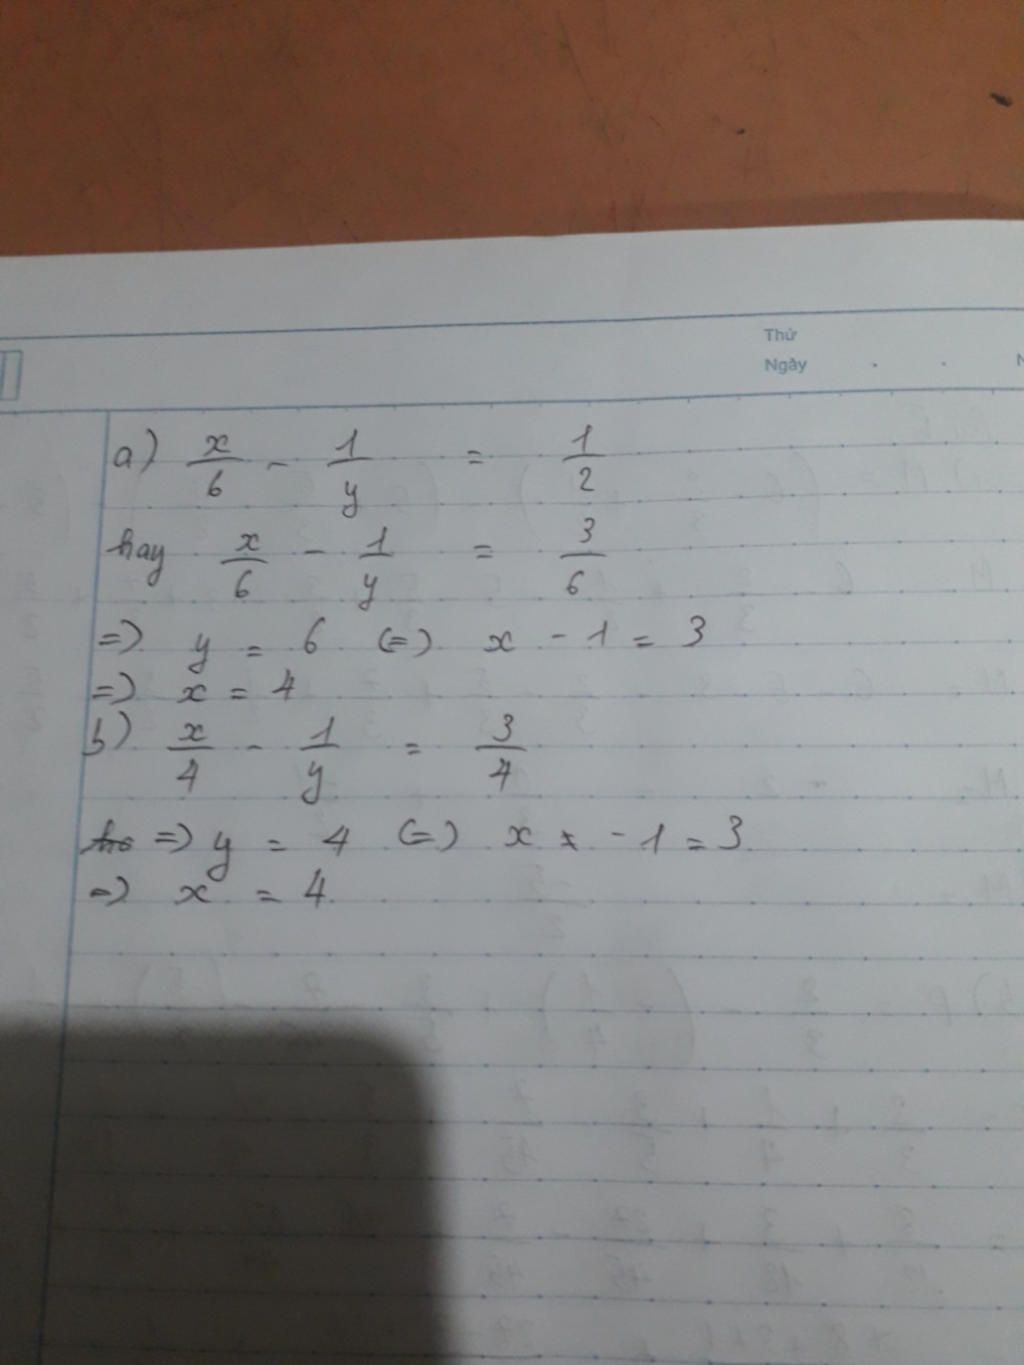 Thứ
Ngày . . N
a) x/6 - 1/y = 1/2
hay x/6 - 1/y = 3/6
=) y = 6 (=) x - 1 = 3
=) x = 4
b) x/4 - 1/y = 3/4
=) y = 4 (=) x - 1 = 3
=) x = 4